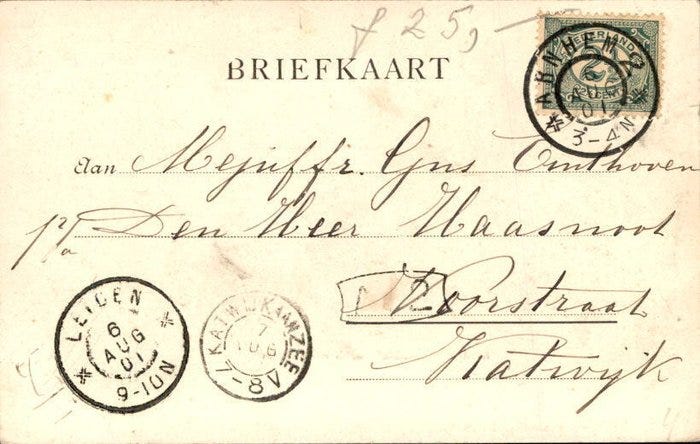 f 25,-
BRIEFKAART
NEDERLAND
2½
ARNHEM 2
AUG
01
3-4N
Aan Mejuffr. Gns Einthoven
p/a Den Heer Haasnoot
Voorstraat
Katwijk
LEIDEN
6
AUG
01
9-10N
KATWIJK AAN ZEE
7
AUG
01
7-8V